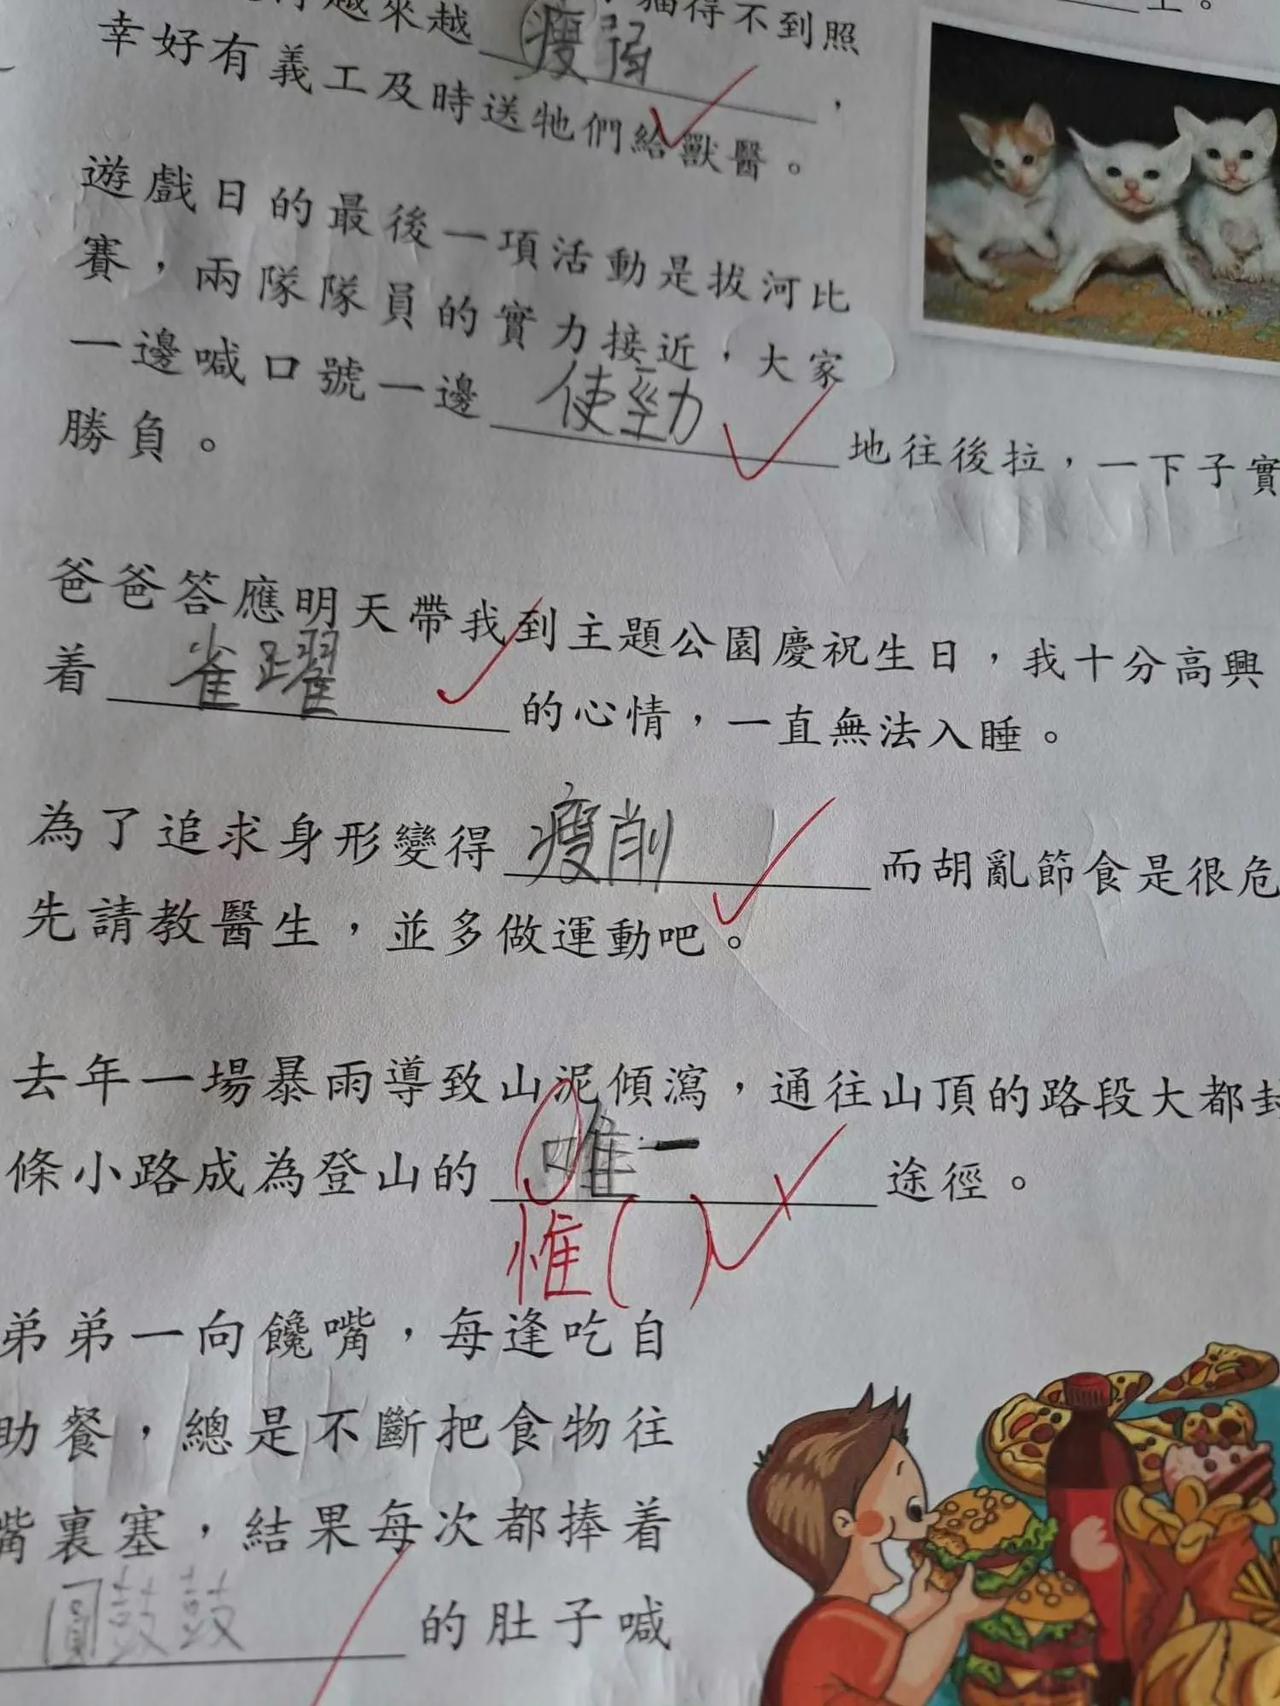 越來越 瘦弱 ，
貓得不到照
幸好有義工及時送牠們給獸醫。
遊戲日的最後一項活動是拔河比
賽，兩隊隊員的實力接近，大家
一邊喊口號一邊 使勁 地往後拉，一下子實
勝負。
爸爸答應明天帶我到主題公園慶祝生日，我十分高興
着 雀躍 的心情，一直無法入睡。
為了追求身形變得 瘦削 而胡亂節食是很危
先請教醫生，並多做運動吧。
去年一場暴雨導致山泥傾瀉，通往山頂的路段大都封
條小路成為登山的 唯一 途徑。
惟( )
弟弟一向饞嘴，每逢吃自
助餐，總是不斷把食物往
嘴裏塞，結果每次都捧着
圓鼓鼓 的肚子喊